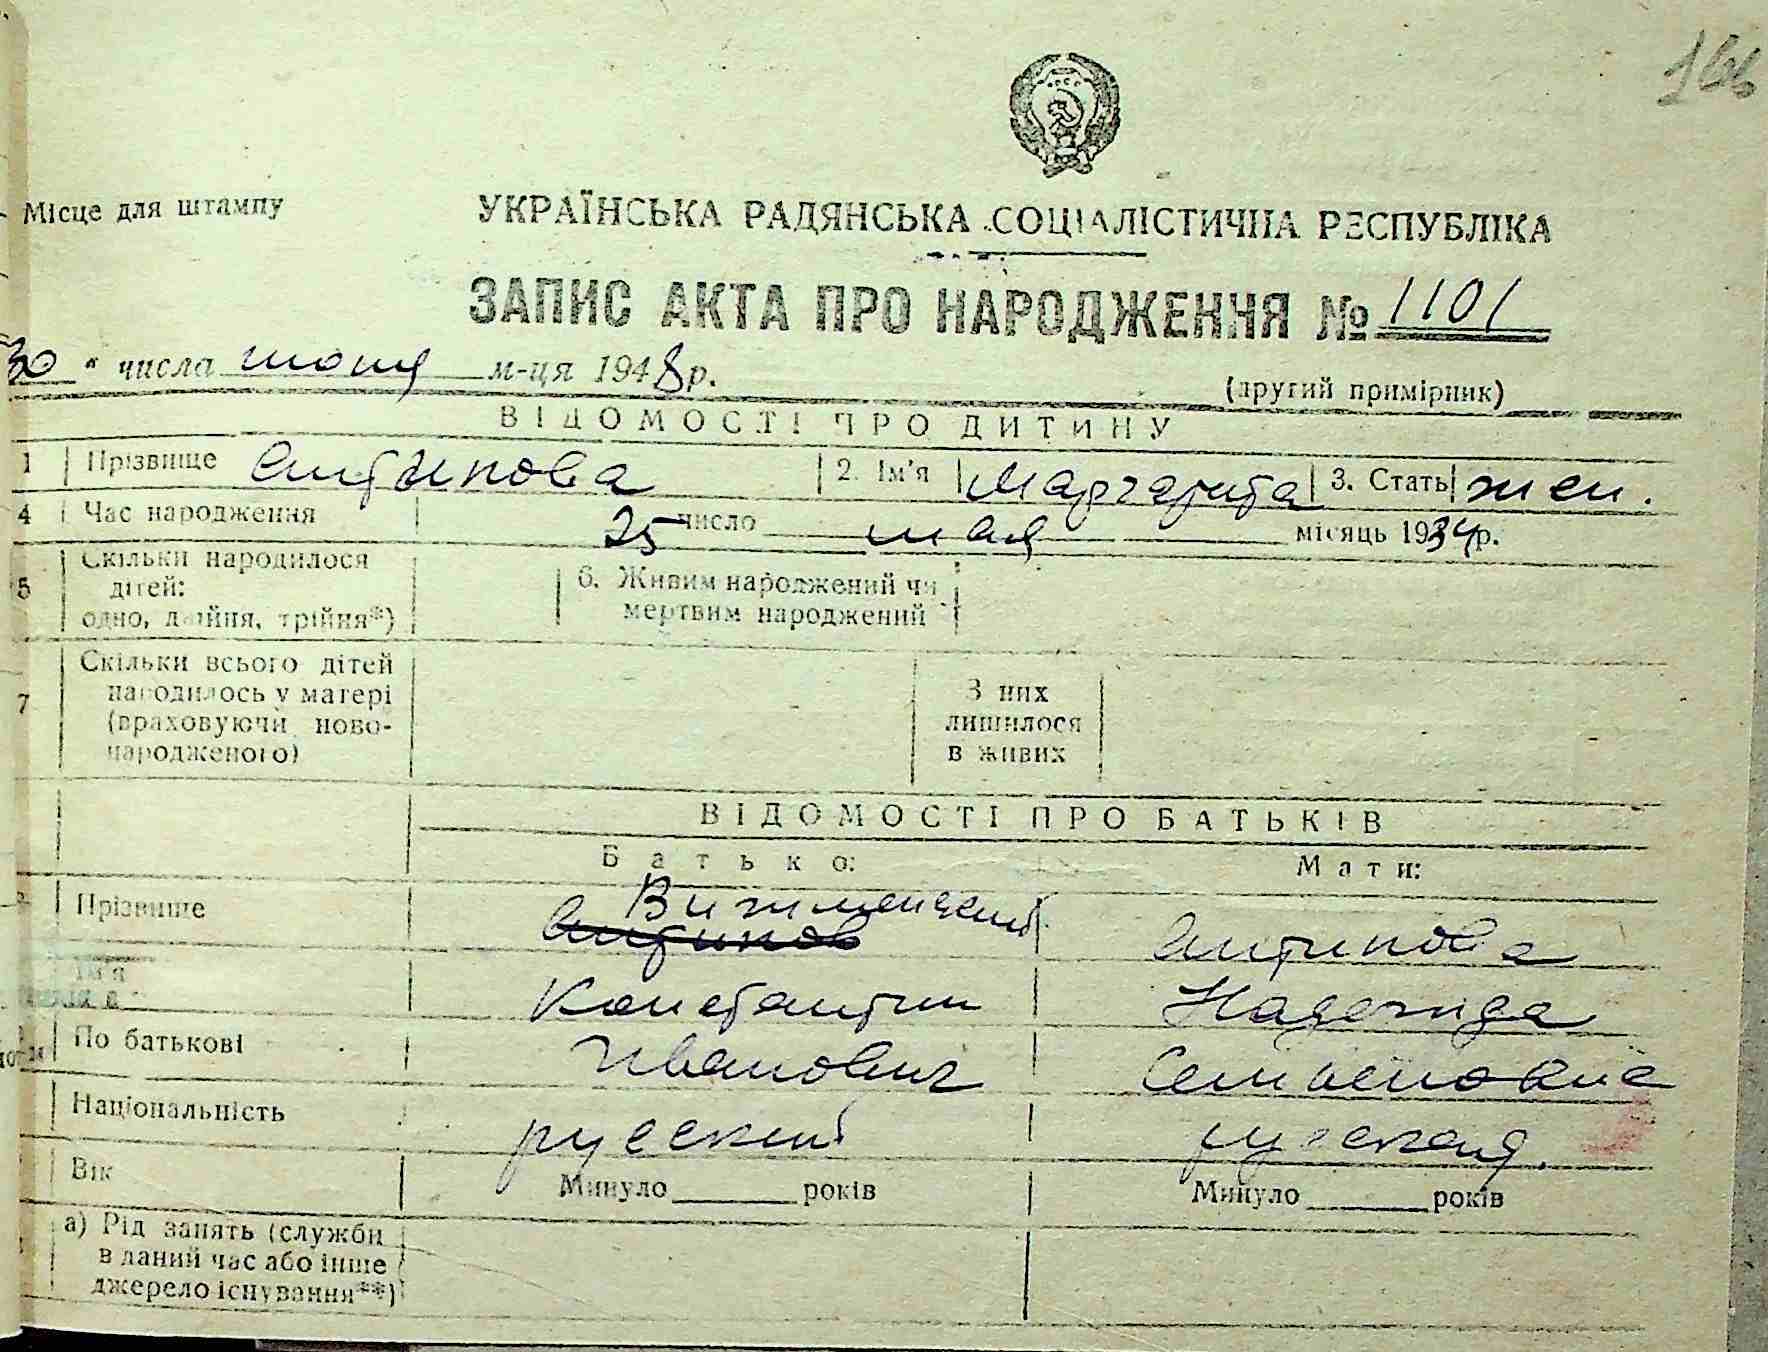 Місце для штампу
УКРАЇНСЬКА РАДЯНСЬКА СОЦІАЛІСТИЧНА РЕСПУБЛІКА
ЗАПИС АКТА ПРО НАРОДЖЕННЯ № 1101
30 " числа июня м-ця 1948 р.
(другий примірник)
ВІДОМОСТІ ПРО ДИТИНУ
1 Прізвище Антипова 2. Ім'я Маргарита 3. Стать жен.
4 Час народження 25 число мая місяць 1934 р.
5 Скільки народилося дітей: одно, двійня, трійня*) 6. Живим народжений чи мертвим народжений
7 Скільки всього дітей народилось у матері (враховуючи новонародженого) З них лишилося в живих
ВІДОМОСТІ ПРО БАТЬКІВ
Батько: Мати:
Прізвище Антипов Антипова
Ім'я Константин Надежда
По батькові Иванович Семёновна
Національність русский русская.
Вік Минуло років Минуло років
а) Рід занять (служби в даний час або інше джерело існування**)